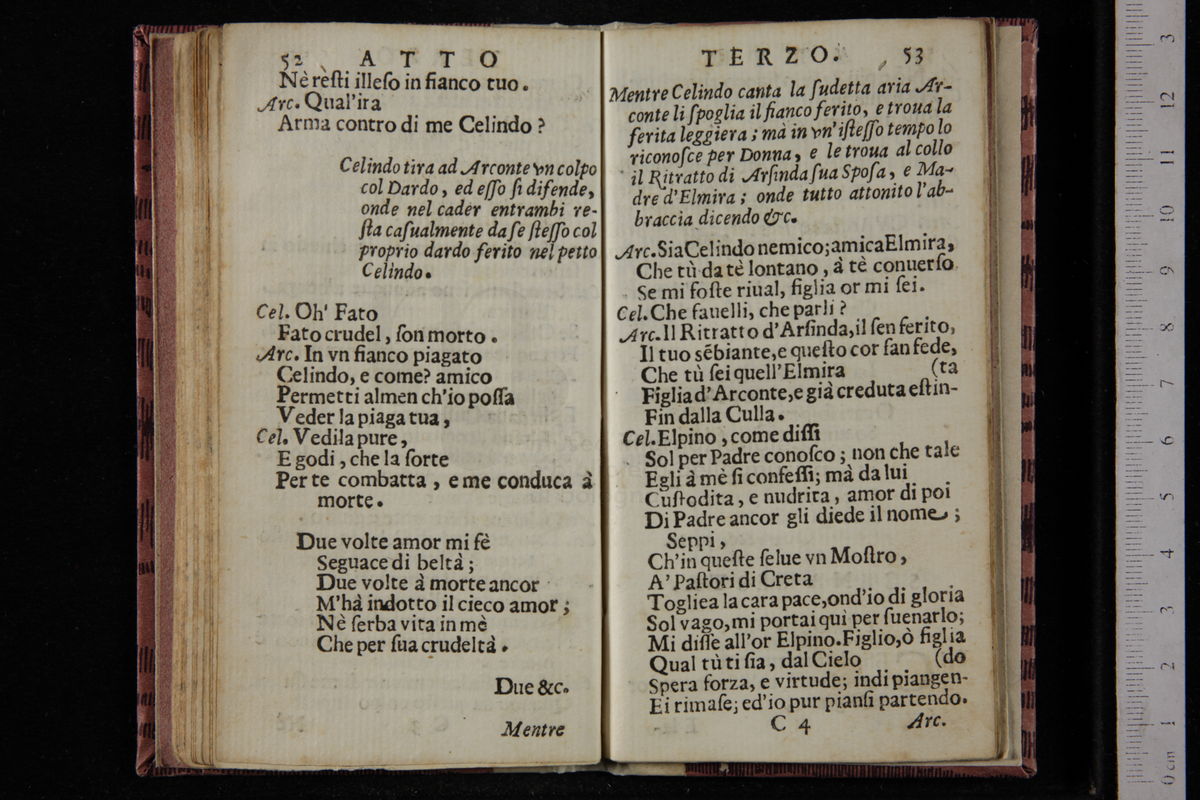 52 ATTO
Nè rèſti illeſo in fianco tuo.
Arc. Qual'ira
Arma contro di me Celindo ?
Celindo tira ad Arconte vn colpo
col Dardo, ed eſſo ſi difende,
onde nel cader entrambi re-
ſta caſualmente da ſe ſteſſo col
proprio dardo ferito nel petto
Celindo.
Cel. Oh' Fato
Fato crudel, ſon morto.
Arc. In vn fianco piagato
Celindo, e come? amico
Permetti almen ch'io poſſa
Veder la piaga tua,
Cel. Vedila pure,
E godi, che la ſorte
Per te combatta, e me conduca à
morte.
Due volte amor mi fè
Seguace di beltà;
Due volte à morte ancor
M'hà indotto il cieco amor;
Nè ſerba vita in mè
Che per ſua crudeltà.
Due &c.
Mentre
TERZO. 53
Mentre Celindo canta la ſudetta aria Ar-
conte li ſpoglia il fianco ferito, e troua la
ferita leggiera; mà in vn' iſteſſo tempo lo
riconoſce per Donna, e le troua al collo
il Ritratto di Arſinda ſua Spoſa, e Ma-
dre d'Elmira; onde tutto attonito l'ab-
braccia dicendo &c.
Arc. Sia Celindo nemico; amica Elmira,
Che tù da tè lontano, à tè conuerſo
Se mi foſte riual, figlia or mi ſei.
Cel. Che fauelli, che parli ?
Arc. Il Ritratto d'Arſinda, il ſen ferito,
Il tuo sẽbiante, e queſto cor ſan fede,
Che tù ſei quell'Elmira (ta
Figlia d'Arconte, e già creduta eſtin-
Fin dalla Culla.
Cel. Elpino, come diſſi
Sol per Padre conoſco; non che tale
Egli à mè ſi confeſſi; mà da lui
Cuſtodita, e nudrita, amor di poi
Di Padre ancor gli diede il nome;
Seppi,
Ch'in queſte ſelue vn Moſtro,
A' Paſtori di Creta
Togliea la cara pace, ond'io di gloria
Sol vago, mi portai quì per ſuenarlo;
Mi diſſe all'or Elpino. Figlio, ò figlia
Qual tù ti ſia, dal Cielo (do
Spera forza, e virtude; indi piangen-
Ei rimaſe; ed'io pur pianſi partendo.
C 4 Arc.
0 cm 1 2 3 4 5 6 7 8 9 10 11 12 3